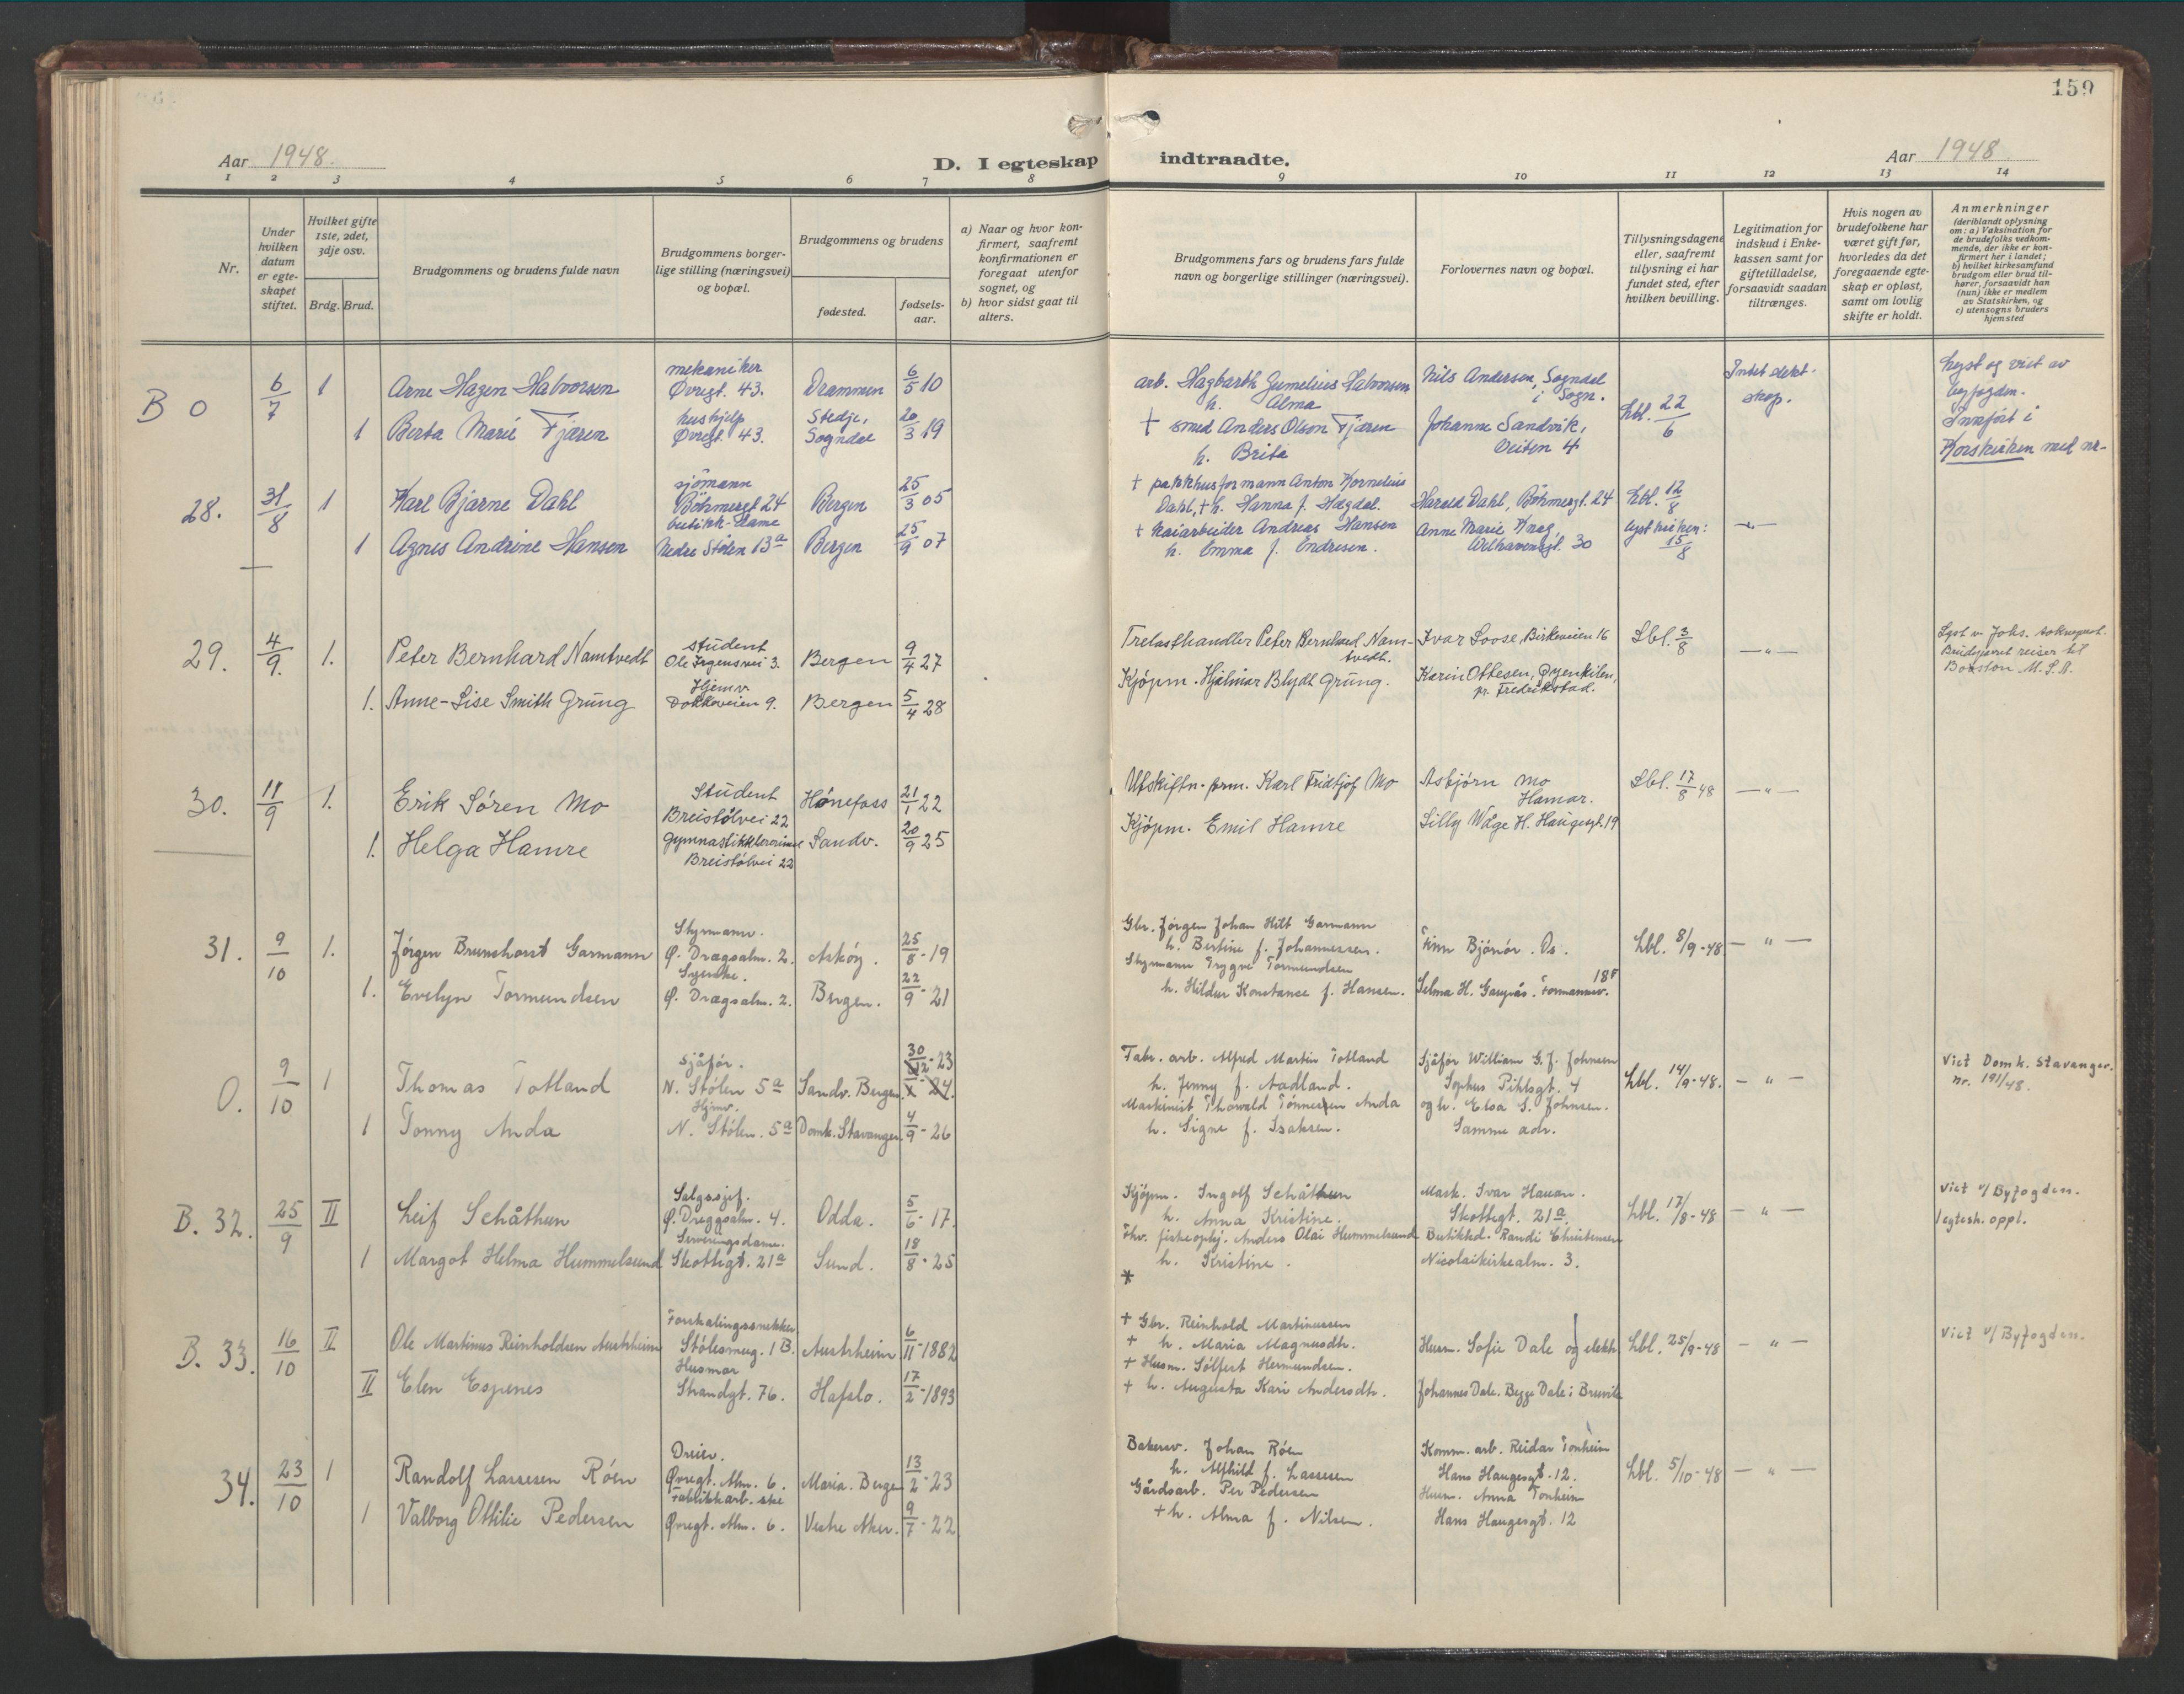 159
Aar 1948.
D. I egteskap indtraadte.
Aar 1948
1 2 3 4 5 6 7 8 9 10 11 12 13 14
Nr.
Under hvilken datum er egteskapet stiftet.
Hvilket gifte 1ste, 2det, 3dje osv.
Brdg. Brud.
Brudgommens og brudens fulde navn
Brudgommens borgerlige stilling (næringsvei) og bopæl.
Brudgommens og brudens
fødested.
fødselsaar.
a) Naar og hvor konfirmert, saafremt konfirmationen er foregaat utenfor sognet, og
b) hvor sidst gaat til alters.
Brudgommens fars og brudens fars fulde navn og borgerlige stillinger (næringsvei).
Forlovernes navn og bopæl.
Tillysningsdagene eller, saafremt tillysning ei har fundet sted, efter hvilken bevilling.
Legitimation for indskud i Enkekassen samt for giftetilladelse, forsaavidt saadan tiltrænges.
Hvis nogen av brudefolkene har været gift før, hvorledes da det foregaaende egteskap er opløst, samt om lovlig skifte er holdt.
Anmerkninger
(deriblandt oplysning om: a) Vaksination for de brudefolks vedkommende, der ikke er konfirmert her i landet; b) hvilket kirkesamfund brudgom eller brud tilhører, forsaavidt han (hun) ikke er medlem av Statskirken, og c) utensogns bruders hjemsted
B 0 6/7 1 Arne Hagen Halvorsen mekaniker Øvregt. 43. Drammen 6/5 10
arb. Hagbarth Gumelius Halvorsen h. Alma Nils Andersen, Sogndal i Sogn. Lbl. 22/6 Intet slekt-skap. Lyst og viet av byfogden.
1 Berta Marie Fjæren hushjelp Øvregt. 43. Stedje, Sogndal 20/3 19
† smed Anders Olson Fjæren h. Brita Johanne Sandvik, Veiten 4 Innført i Korskirken med nr-
28. 31/8 1 Karl Bjarne Dahl sjömann Böhmergt 24 Bergen 25/3 05
† pakkhusformann Anton Kornelius Dahl, † h. Hanna f. Hægdal. Harald Dahl, Böhmergt. 24 Lbl. 12/8
1 Agnes Andrine Hansen butikk-dame Nedre Stølen 13a Bergen 25/9 07
† kaiarbeider Andreas Hansen h. Emma f. Endresen. Anne Marie Krag, Welhavensgt. 30 lyst kirken: 15/8 -"-
29. 4/9. 1. Peter Bernhard Namtvedt student Ole Irgensvei 3. Bergen 9/4 27
Trelasthandler Peter Bernhard Namtvedt. Ivar Loose, Birkeveien 16 Lbl. 3/8 -"- Lyst v. Johs. sokneprest. Brudeparet reiser til Boston U.S.A.
1. Anne-Lise Smith Grüng Hjemv. Dokkeveien 9. Bergen 5/4 28
Kjøpm. Hjalmar Blydt Grüng. Karin Ottesen, Øyenkilen, pr. Fredrikstad.
30. 11/9 1. Erik Søren Mo Student Breistølvei 22 Hønefoss 21/1 22
Utskiftn. form. Karl Fridtjof Mo Asbjørn Mo Hamar. Lbl. 17/8 48 -"-
1. Helga Hamre Gymnastikklærerinne Breistølvei 22 Sandv. 20/9 25
Kjøpm. Emil Hamre Lilly Wåge H. Haugesgt. 19
31. 9/10 1. Jørgen Brunchorst Garmann Styrmann. Ø. Dragsalm. 2. Askøy. 25/8-19
Gbr. Jørgen Johan Hilt Garmann h. Bertine f. Johannessen. Finn Bjørnør. Os. Lbl. 8/9-48 - " -
1. Evelyn Tormundsen Syerske. Ø. Dragsalm. 2. Bergen. 22/9-21
Styrmann Trygve Tormundsen h. Hildur Konstance f. Hansen. Selma H. Gaupås. Formannsv. 18
0. 9/10 1 Thomas Totland Sjåfør. N. Stølen 5a Sandv. Bergen 30/12-23
Fabr. arb. Alfred Martin Totland h. Jenny f. Aadland. Sjåfør William G. F. Johnsen Sophus Pihlsgt. 4 Lbl. 14/9-48. - " - Viet Domk. Stavanger. nr. 191/48.
1 Tonny Anda Hjemv. N. Stølen. 5a Domk. Stavanger. 4/9-26
Maskinist Thorvald Tønnessen Anda h. Signe f. Isaksen. og h. Elsa S. Johnsen. Samme adr.
B. 32. 25/9 II Leif Schåthun Salgssjef. Ø. Dreggsalm. 4. Odda. 5/6-17.
Kjøpm. Ingolf Schåthun h. Anna Kristine. Mask. Ivar Hauan. Skottegt. 21a. Lbl. 17/8-48 - " - Viet v/Byfogden. 1 egtesk. oppl.
1 Margot Helma Hummelsund Serveringsdame. Skottegt. 21a Sund. 18/8-25
Thv. fiskeoppkj. Anders Olai Hummelsund h. Kristine. Butikkd. Randi Christensen Nicolaikirkealm. 3.
*
B. 33. 16/10 II Ole Martinus Reinholdsen Austrheim Forskalingssnekker Stølesmug. 1 B. Austrheim 6/11-1882
+ Gbr. Reinhold Martinussen + h. Maria Magnusdtr. Husm. Sofie Dale og elektr. Lbl. 25/9-48 - " - Viet v/Byfogden.
II Elen Espenes Husmor Strandgt. 76. Hafslo. 17/2-1893
+ Husm. Sølfest Hermundsen. + h. Augusta Kari Andersdtr. Johannes Dale. Begge Dale i Bruvik
34. 23/10 1 Randolf Lassesen Röen Dreier. Øvregt. Alm. 6. Maria. Bergen 13/2-23
Bakersv. Johan Röen h. Alfhild f. Lassesen Komm. arb. Reidar Tonheim Hans Haugesgt. 12. Lbl. 5/10-48 - " -
1 Valborg Ottilie Pedersen Fabrikkarb.ske Øvregt. Alm. 6. Vestre Aker. 9/7-22
Gårdsarb. Per Pedersen + h. Alma f. Nilsen. Husm. Anna Tonheim Hans Haugesgt. 12